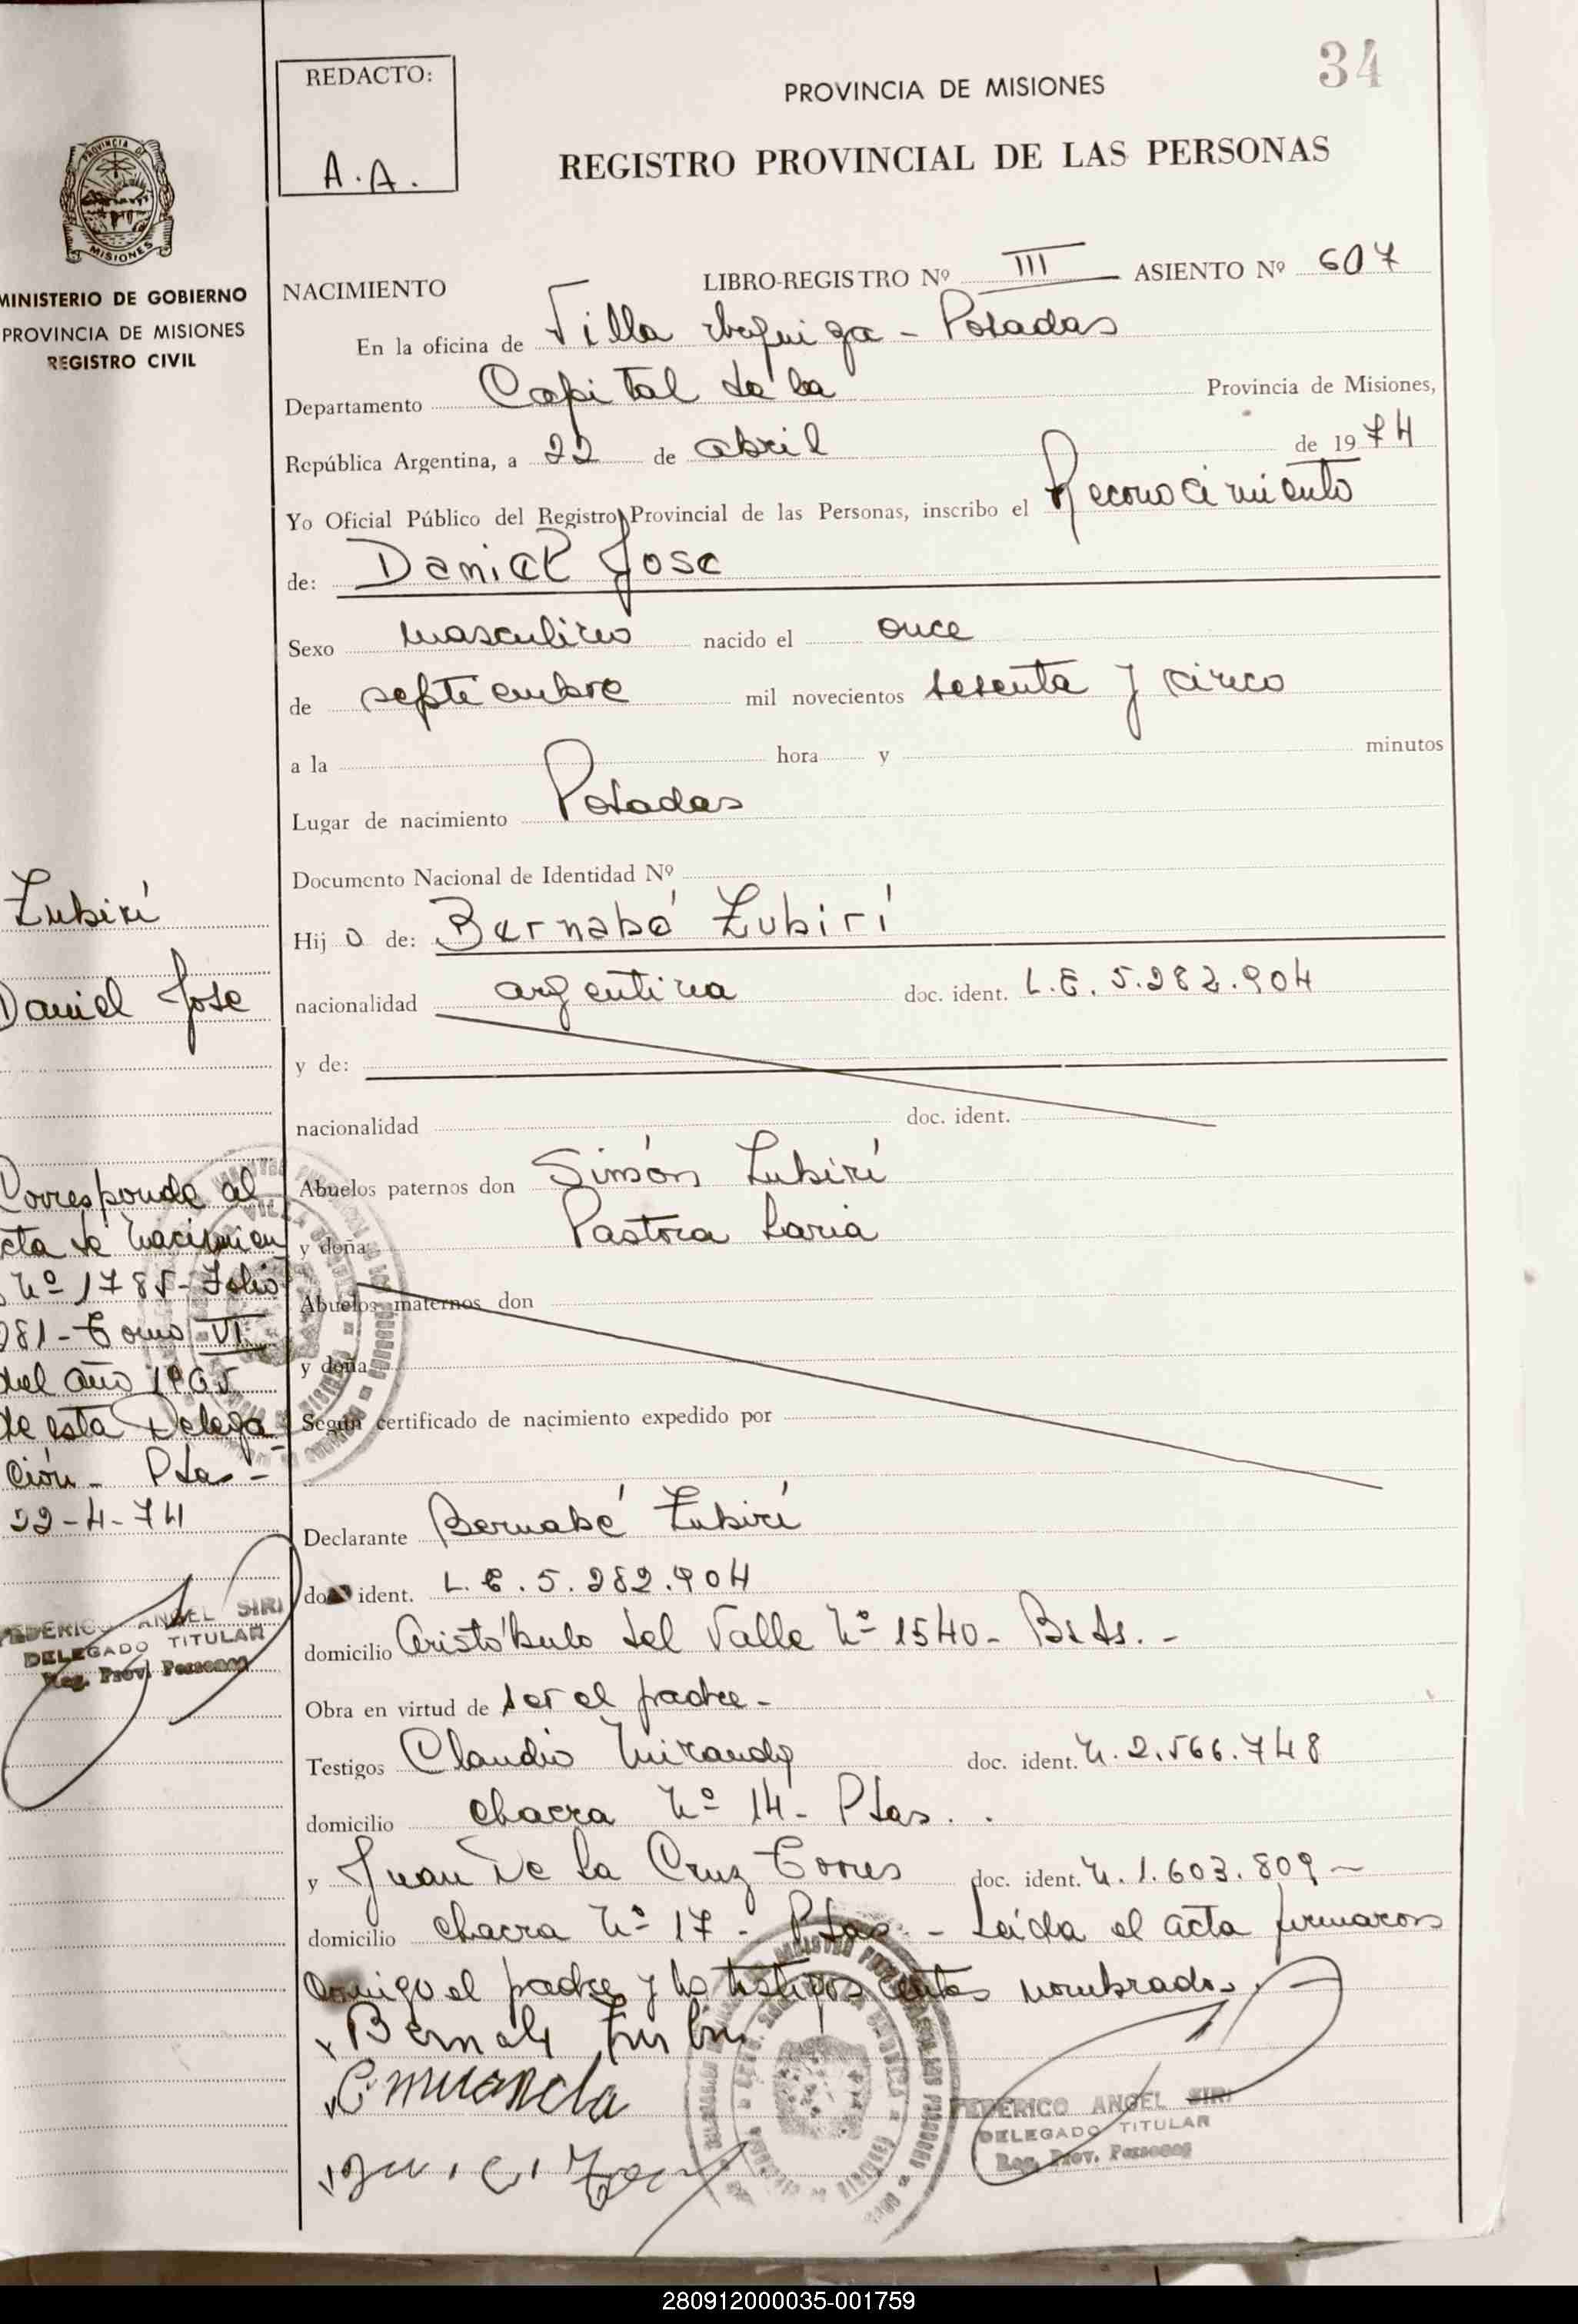 34
REDACTO:
A.A.
PROVINCIA DE MISIONES
REGISTRO PROVINCIAL DE LAS PERSONAS
PROVINCIA DE
MISIONES
MINISTERIO DE GOBIERNO
PROVINCIA DE MISIONES
REGISTRO CIVIL
NACIMIENTO LIBRO-REGISTRO Nº III ASIENTO Nº 607
En la oficina de Villa Urquiza - Posadas
Departamento Capital de la Provincia de Misiones,
República Argentina, a 22 de abril de 1974
Yo Oficial Público del Registro Provincial de las Personas, inscribo el Reconocimiento
de: Daniel Jose
Sexo masculino nacido el once
de septiembre mil novecientos sesenta y cinco
a la hora y minutos
Lugar de nacimiento Posadas
Documento Nacional de Identidad Nº
Hij o de: Bernabé Zubirí
nacionalidad argentina doc. ident. L.E. 5.282.904
y de:
nacionalidad doc. ident.
Abuelos paternos don Simón Zubirí
y doña Pastora Laria
Abuelos maternos don
y doña
Según certificado de nacimiento expedido por
Declarante Bernabé Zubirí
doc ident. L.E. 5.282.904
domicilio Aristóbulo del Valle Nº 1540-
Obra en virtud de ser el padre-
Testigos Claudio Miranda doc. ident. M. 2.566.748
domicilio chacra Nº 14- Pdas.
y Juan De La Cruz Torres doc. ident. M. 1.603.809
domicilio chacra Nº 17- Pdas. - Leída el acta firmaron
conmigo el padre y los testigos antes nombrados.
FEDERICO ANGEL SIRI
DELEGADO TITULAR
Reg. Prov. Personas
Zubirí
Daniel Jose
Corresponde al
cta de nacimien
Nº 1785- Folio
281- Tomo VI
del año 1965
de esta Delega
ción- Pdas-
22-4-74
FEDERICO ANGEL SIRI
DELEGADO TITULAR
Reg. Prov. Personas
280912000035-001759